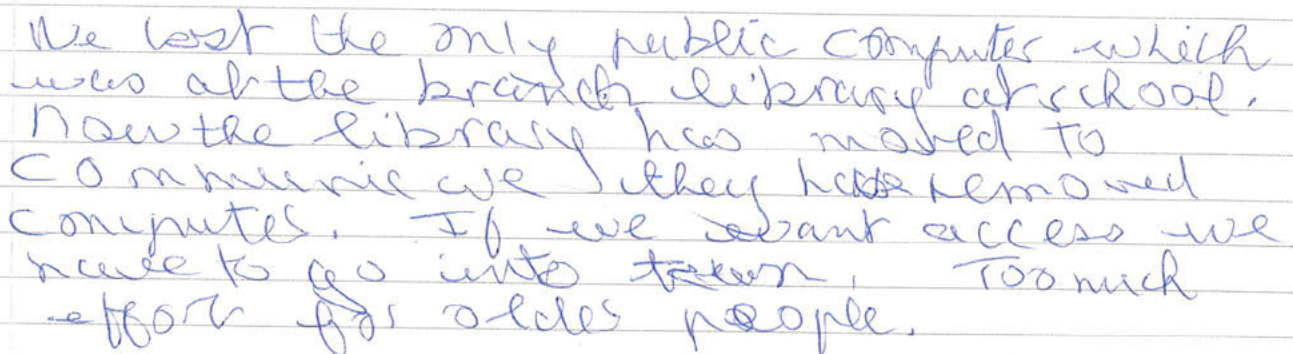 We lost the only public computer which
was at the branch library at school.
Now the library has moved to
they have removed
computer. If we want access we
have to go into town. Too much
effort for older people.